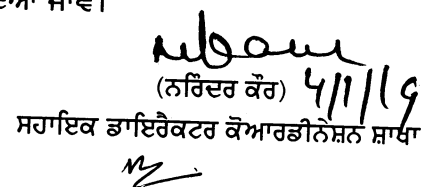 ਜਾਵੇ।
(ਨਰਿੰਦਰ ਕੌਰ) 4/1/19
ਸਹਾਇਕ ਡਾਇਰੈਕਟਰ ਕੋਆਰਡੀਨੇਸ਼ਨ ਸ਼ਾਖਾ